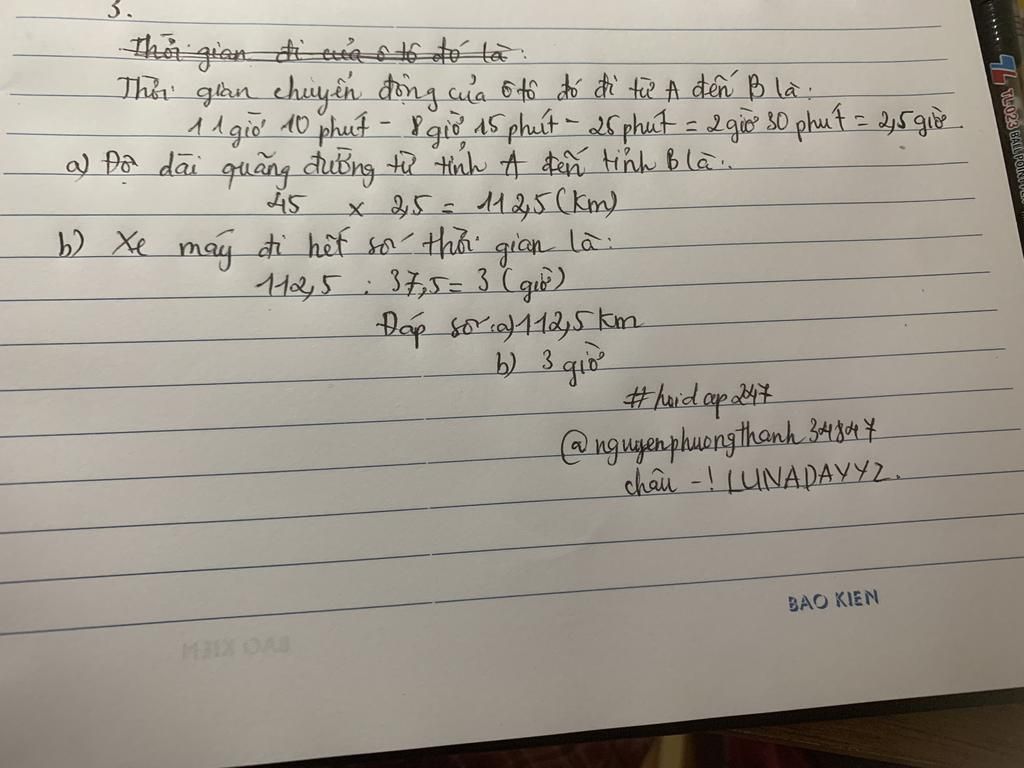 3.
Thời gian đi của ô tô đó là:
Thời gian chuyển động của ô tô đó đi từ A đến B là:
11 giờ 10 phút - 8 giờ 15 phút - 25 phút = 2 giờ 30 phút = 2,5 giờ
a) Độ dài quãng đường từ tỉnh A đến tỉnh B là:
45 x 2,5 = 112,5 (km)
b) Xe máy đi hết số thời gian là:
112,5 : 37,5 = 3 (giờ)
Đáp số: a) 112,5 km
b) 3 giờ
#hoidap247
@nguyenphuongthanh34847
châu -! LUNADAYYZ.
BAO KIEN
TL023 BALLPOINT